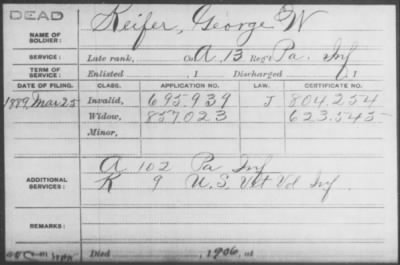 DEAD
NAME OF SOLDIER: Keifer, George W
SERVICE: Late rank, Co. A, 13 Reg't Pa. Inf
TERM OF SERVICE: Enlisted , 1 Discharged , 1
DATE OF FILING. CLASS. APPLICATION NO. LAW. CERTIFICATE NO.
1889, Mar 25 Invalid, 695.939 J 804.254
Widow, 857023 623.545
Minor,
ADDITIONAL SERVICES: A 102 Pa Inf
K 9 U.S. Vet Vol Inf
REMARKS:
Died , 1906, at